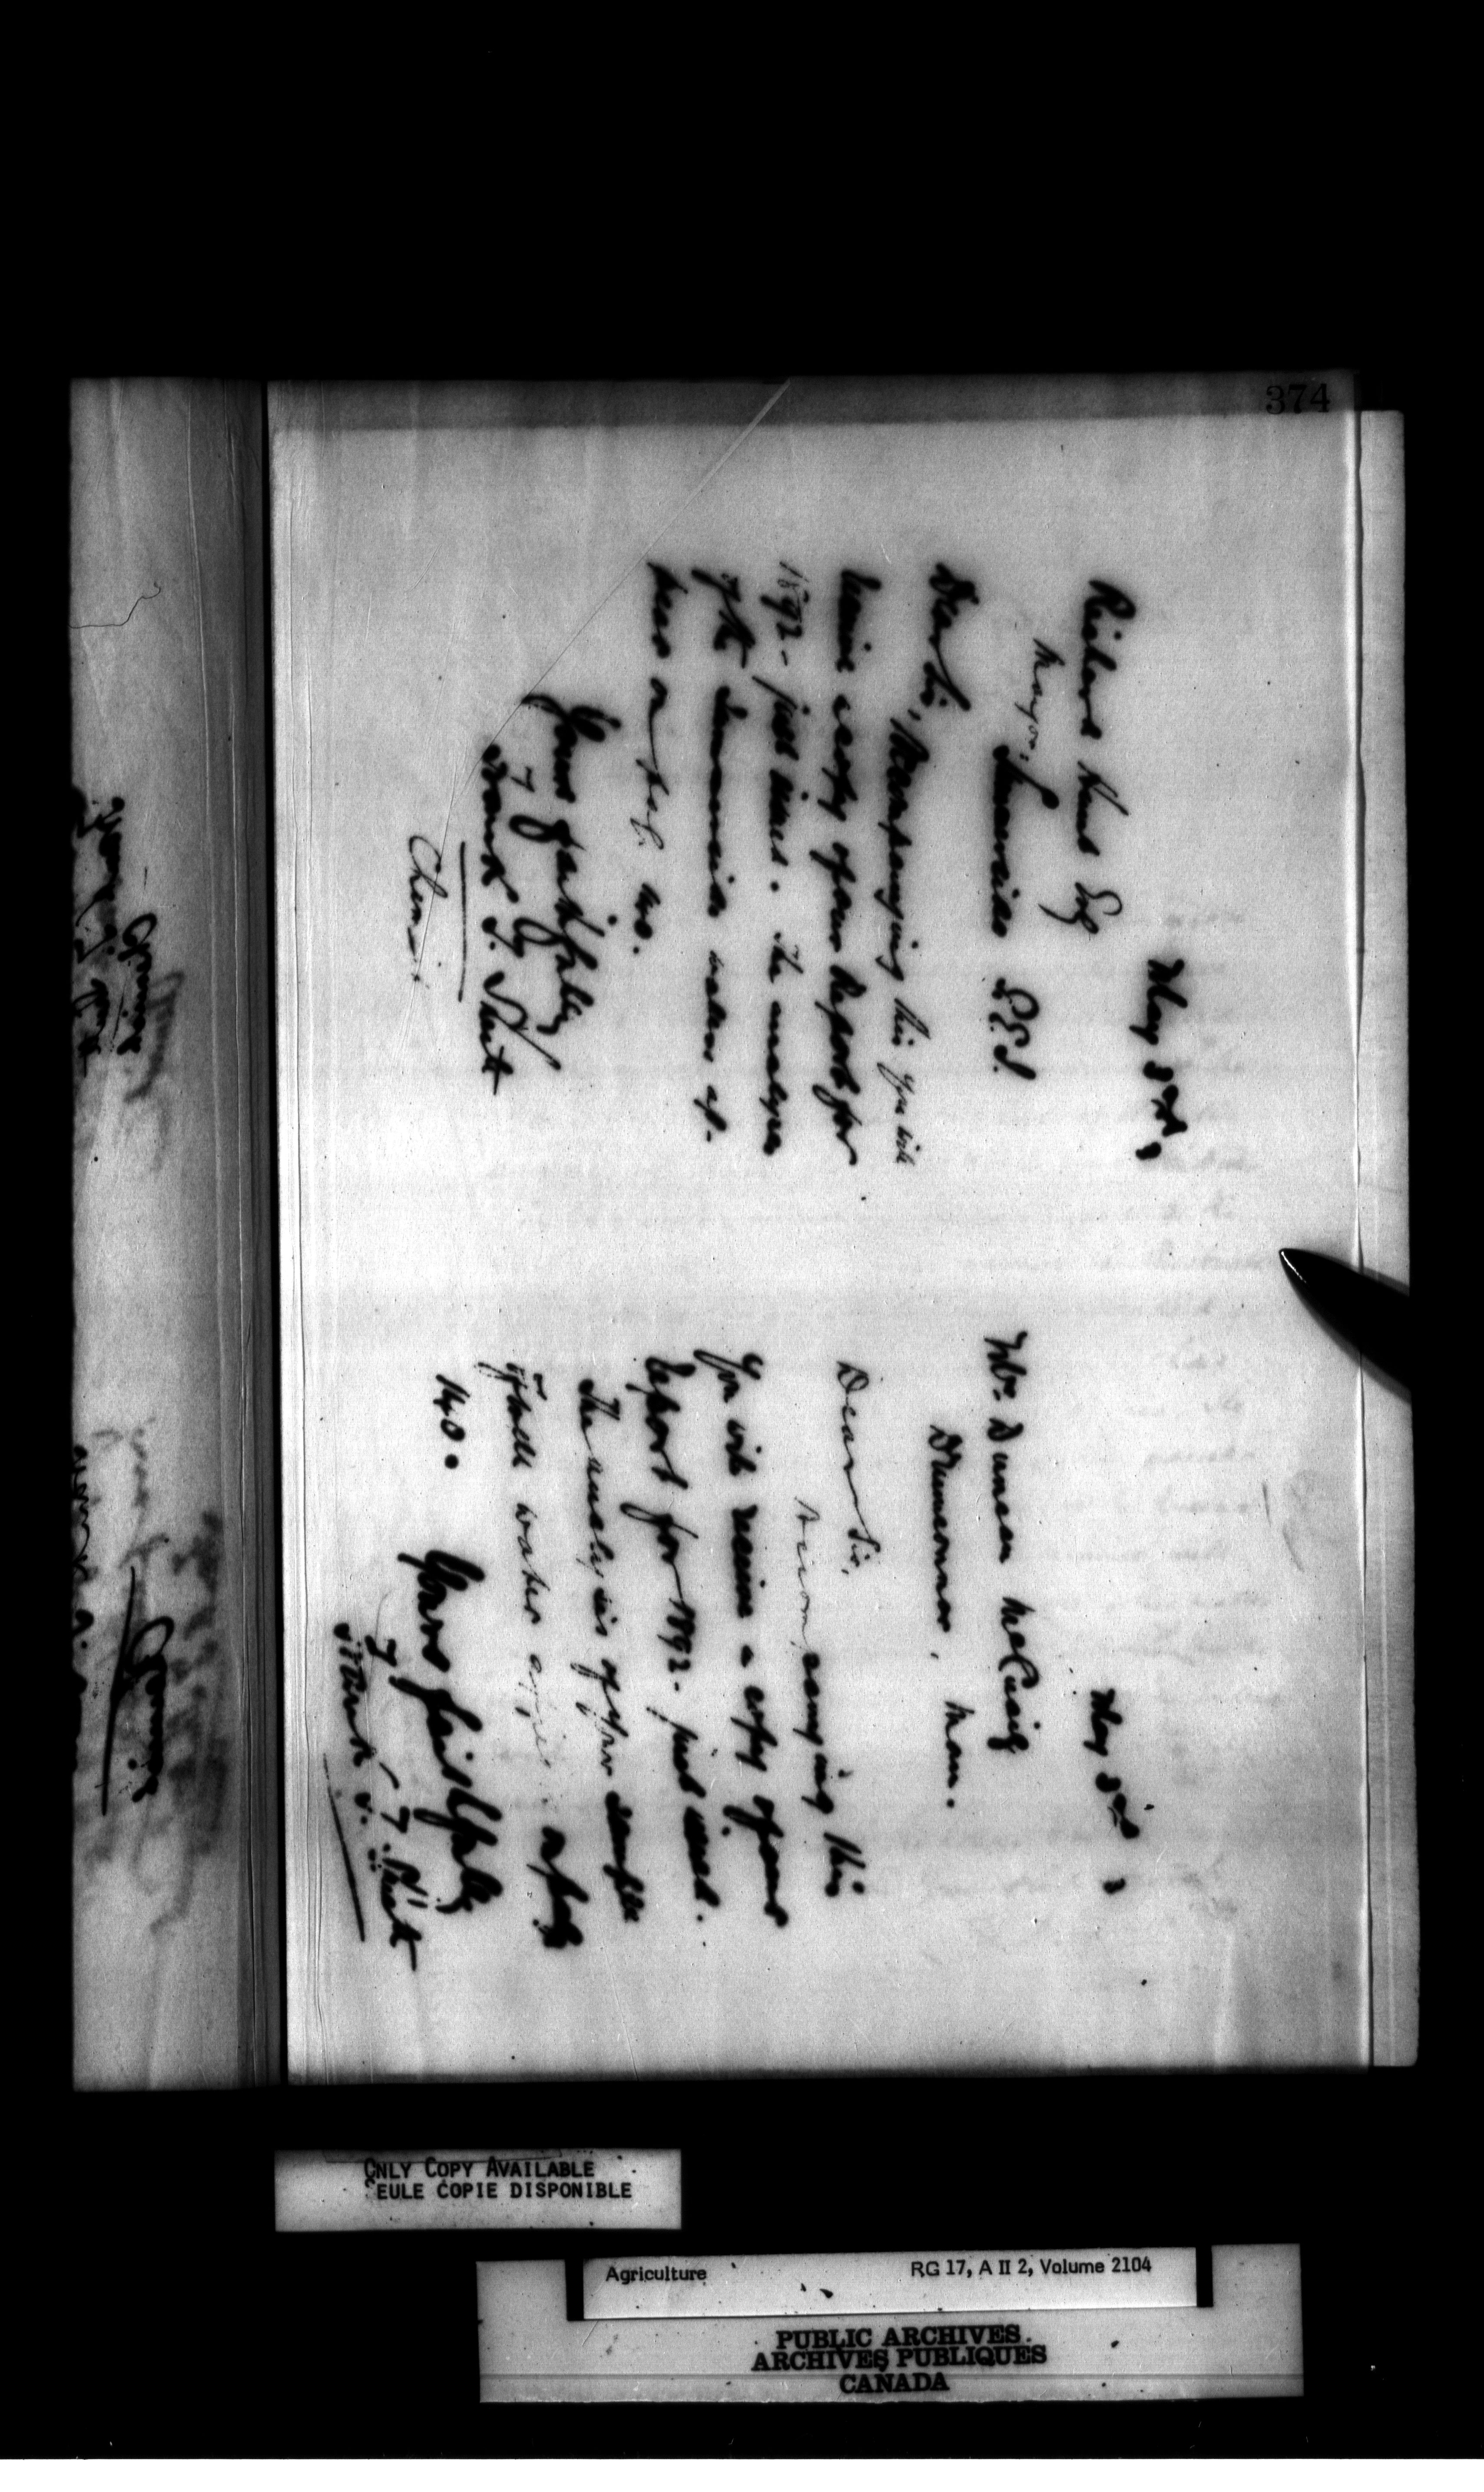 374
May 3rd,
Richard Hunt Esq
Mayor, Summerside P.E.I.
Dear Sir,
Accompanying this you will
receive a copy of our Report for
1892 - just issued. The analyses
of the Summerside waters ap-
pear on page 140.
Yours faithfully
Frank T. Shutt
Chemist
May 3rd,
Mr. Duncan McCuaig
Drumconnor, Man.
Dear Sir,
Accompanying this
you will receive a copy of our
Report for 1892 - just issued.
The analysis of your sample
of water on page
140.
Yours faithfully
Frank T. Shutt
ONLY COPY AVAILABLE
SEULE COPIE DISPONIBLE
Agriculture RG 17, A II 2, Volume 2104
PUBLIC ARCHIVES
ARCHIVES PUBLIQUES
CANADA